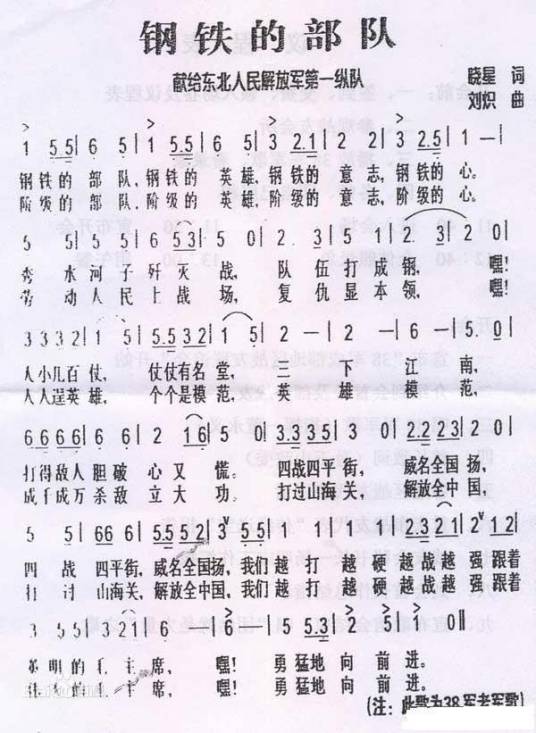 钢铁的部队
献给东北人民解放军第一纵队
晓星 词
刘炽 曲
1 5.5 | 6 5 | 1 5.5 | 6 5 | 3 2.1 | 2 2 | 3 2.5 | 1 — |
钢铁的 部 队,钢铁的 英雄,钢铁的 意志,钢铁的 心。
阶级的 部 队,阶级的 英雄,阶级的 意志,阶级的 心。
5 5 | 5 5 | 6 5 3 | 5 0 | 2. 3 | 5 1 | 2. 3 | 2 0 |
秀 水 河子 歼灭 战, 队 伍 打成 钢, 嘿!
劳 动 人民 上战 场, 复 仇 显本 领, 嘿!
3 3 3 2 | 1 5 | 5.5 3 2 | 1 5 | 2 — | 2 — | 2 6 — | 5. 0 |
人小几百 仗, 仗仗有名 堂, 三 下 江 南,
人人逞英 雄, 个个是模 范, 英 雄 模 范,
6 6 6 6 | 6 6 | 2 1 6 | 5 0 | 3.3 3 5 | 3 0 | 2.2 2 3 | 2 0 |
打得敌人 胆破 心 又 慌。 四战四平街, 威名全国 扬,
成千成万 杀敌 立 大 功。 打过山海关, 解放全中 国,
5 5 | 6 6 6 | 5.5 5 2 | 3 5 5 | 1 1 | 1 1 | 2.3 2 1 | 2 1 2 |
四 战 四平街, 威名全国扬, 我们 越 打 越 硬 越战越 强 跟着
打 过 山海关, 解放全中国, 我们 越 打 越 硬 越战越 强 跟着
3 5.5 | 3 2 1 | 6 — | 6 — | 5 5.3 | 2 5 | 1 — | 1 0 ‖
英明的 毛 主席, 嘿! 勇 猛地 向 前 进。
毛 主席, 嘿! 勇 猛地 向 前 进。
(注: 此歌为38军老军歌)